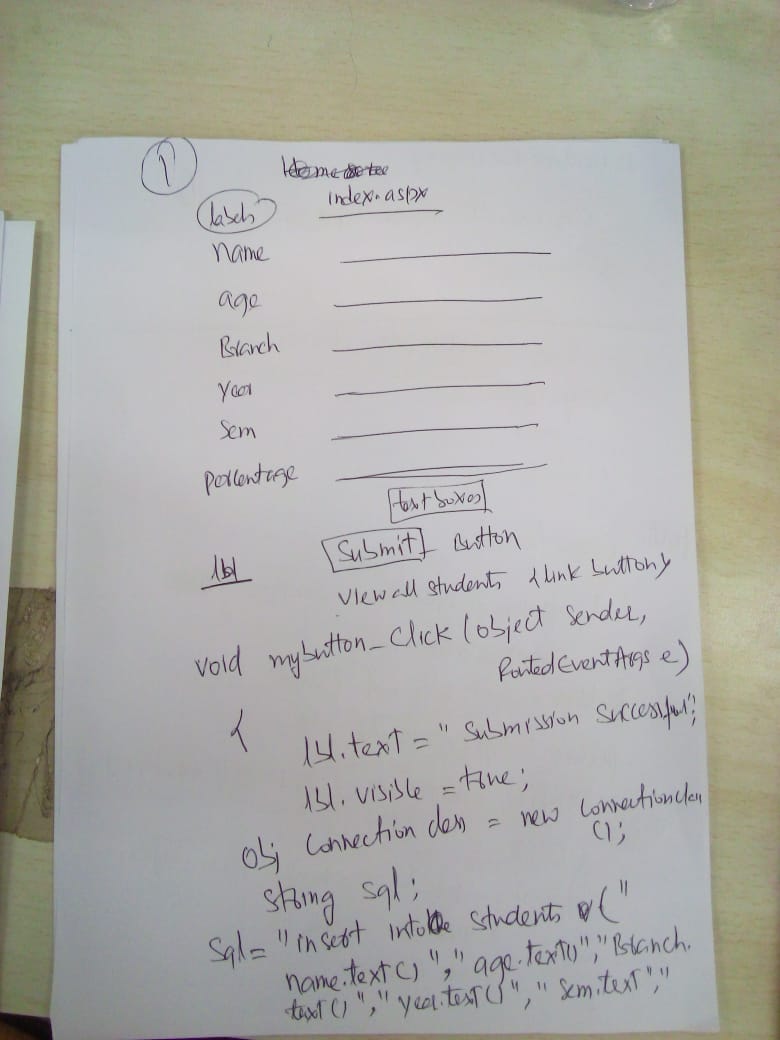 1
index.aspx
labels
name
age
Branch
Year
Sem
percentage
text boxes
lbl
Submit Button
View all students {link button}
void mybutton_Click (object sender,
RoutedEventArgs e)
{
lbl.text = " Submission Successful";
lbl. visible = true;
Obj Connection = new Connectionclass
();
string sql;
Sql= "insert into students ("
name.text() "," age.text()","Branch.
text()"," year.text()"," Sem.text","